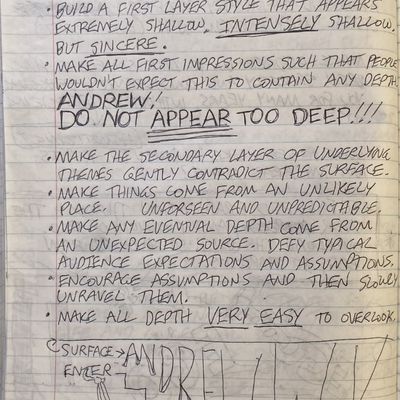 • BUILD A FIRST LAYER STYLE THAT APPEARS
EXTREMELY SHALLOW. INTENSELY SHALLOW.
BUT SINCERE.
• MAKE ALL FIRST IMPRESSIONS SUCH THAT PEOPLE
WOULDN'T EXPECT THIS TO CONTAIN ANY DEPTH.
ANDREW!
DO NOT APPEAR TOO DEEP!!!
• MAKE THE SECONDARY LAYER OF UNDERLYING
THEMES GENTLY CONTRADICT THE SURFACE.
• MAKE THINGS COME FROM AN UNLIKELY
PLACE. UNFORSEEN AND UNPREDICTABLE.
• MAKE ANY EVENTUAL DEPTH COME FROM
AN UNEXPECTED SOURCE. DEFY TYPICAL
AUDIENCE EXPECTATIONS AND ASSUMPTIONS.
• ENCOURAGE ASSUMPTIONS AND THEN SLOWLY
UNRAVEL THEM.
• MAKE ALL DEPTH VERY EASY TO OVERLOOK.
SURFACE → ANDREW W.K.
ENTER